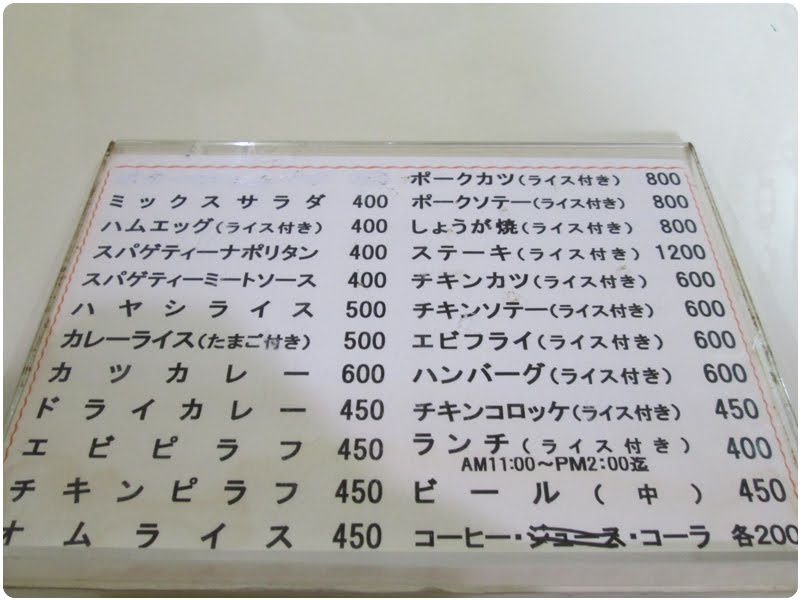 ミックスサラダ 400
ハムエッグ(ライス付き) 400
スパゲティーナポリタン 400
スパゲティーミートソース 400
ハヤシライス 500
カレーライス(たまご付き) 500
カツカレー 600
ドライカレー 450
エビピラフ 450
チキンピラフ 450
オムライス 450
ポークカツ(ライス付き) 800
ポークソテー(ライス付き) 800
しょうが焼(ライス付き) 800
ステーキ(ライス付き) 1200
チキンカツ(ライス付き) 600
チキンソテー(ライス付き) 600
エビフライ(ライス付き) 600
ハンバーグ(ライス付き) 600
チキンコロッケ(ライス付き) 450
ランチ(ライス付き) 400
AM11:00～PM2:00迄
ビール(中) 450
コーヒー・ジュース・コーラ 各200